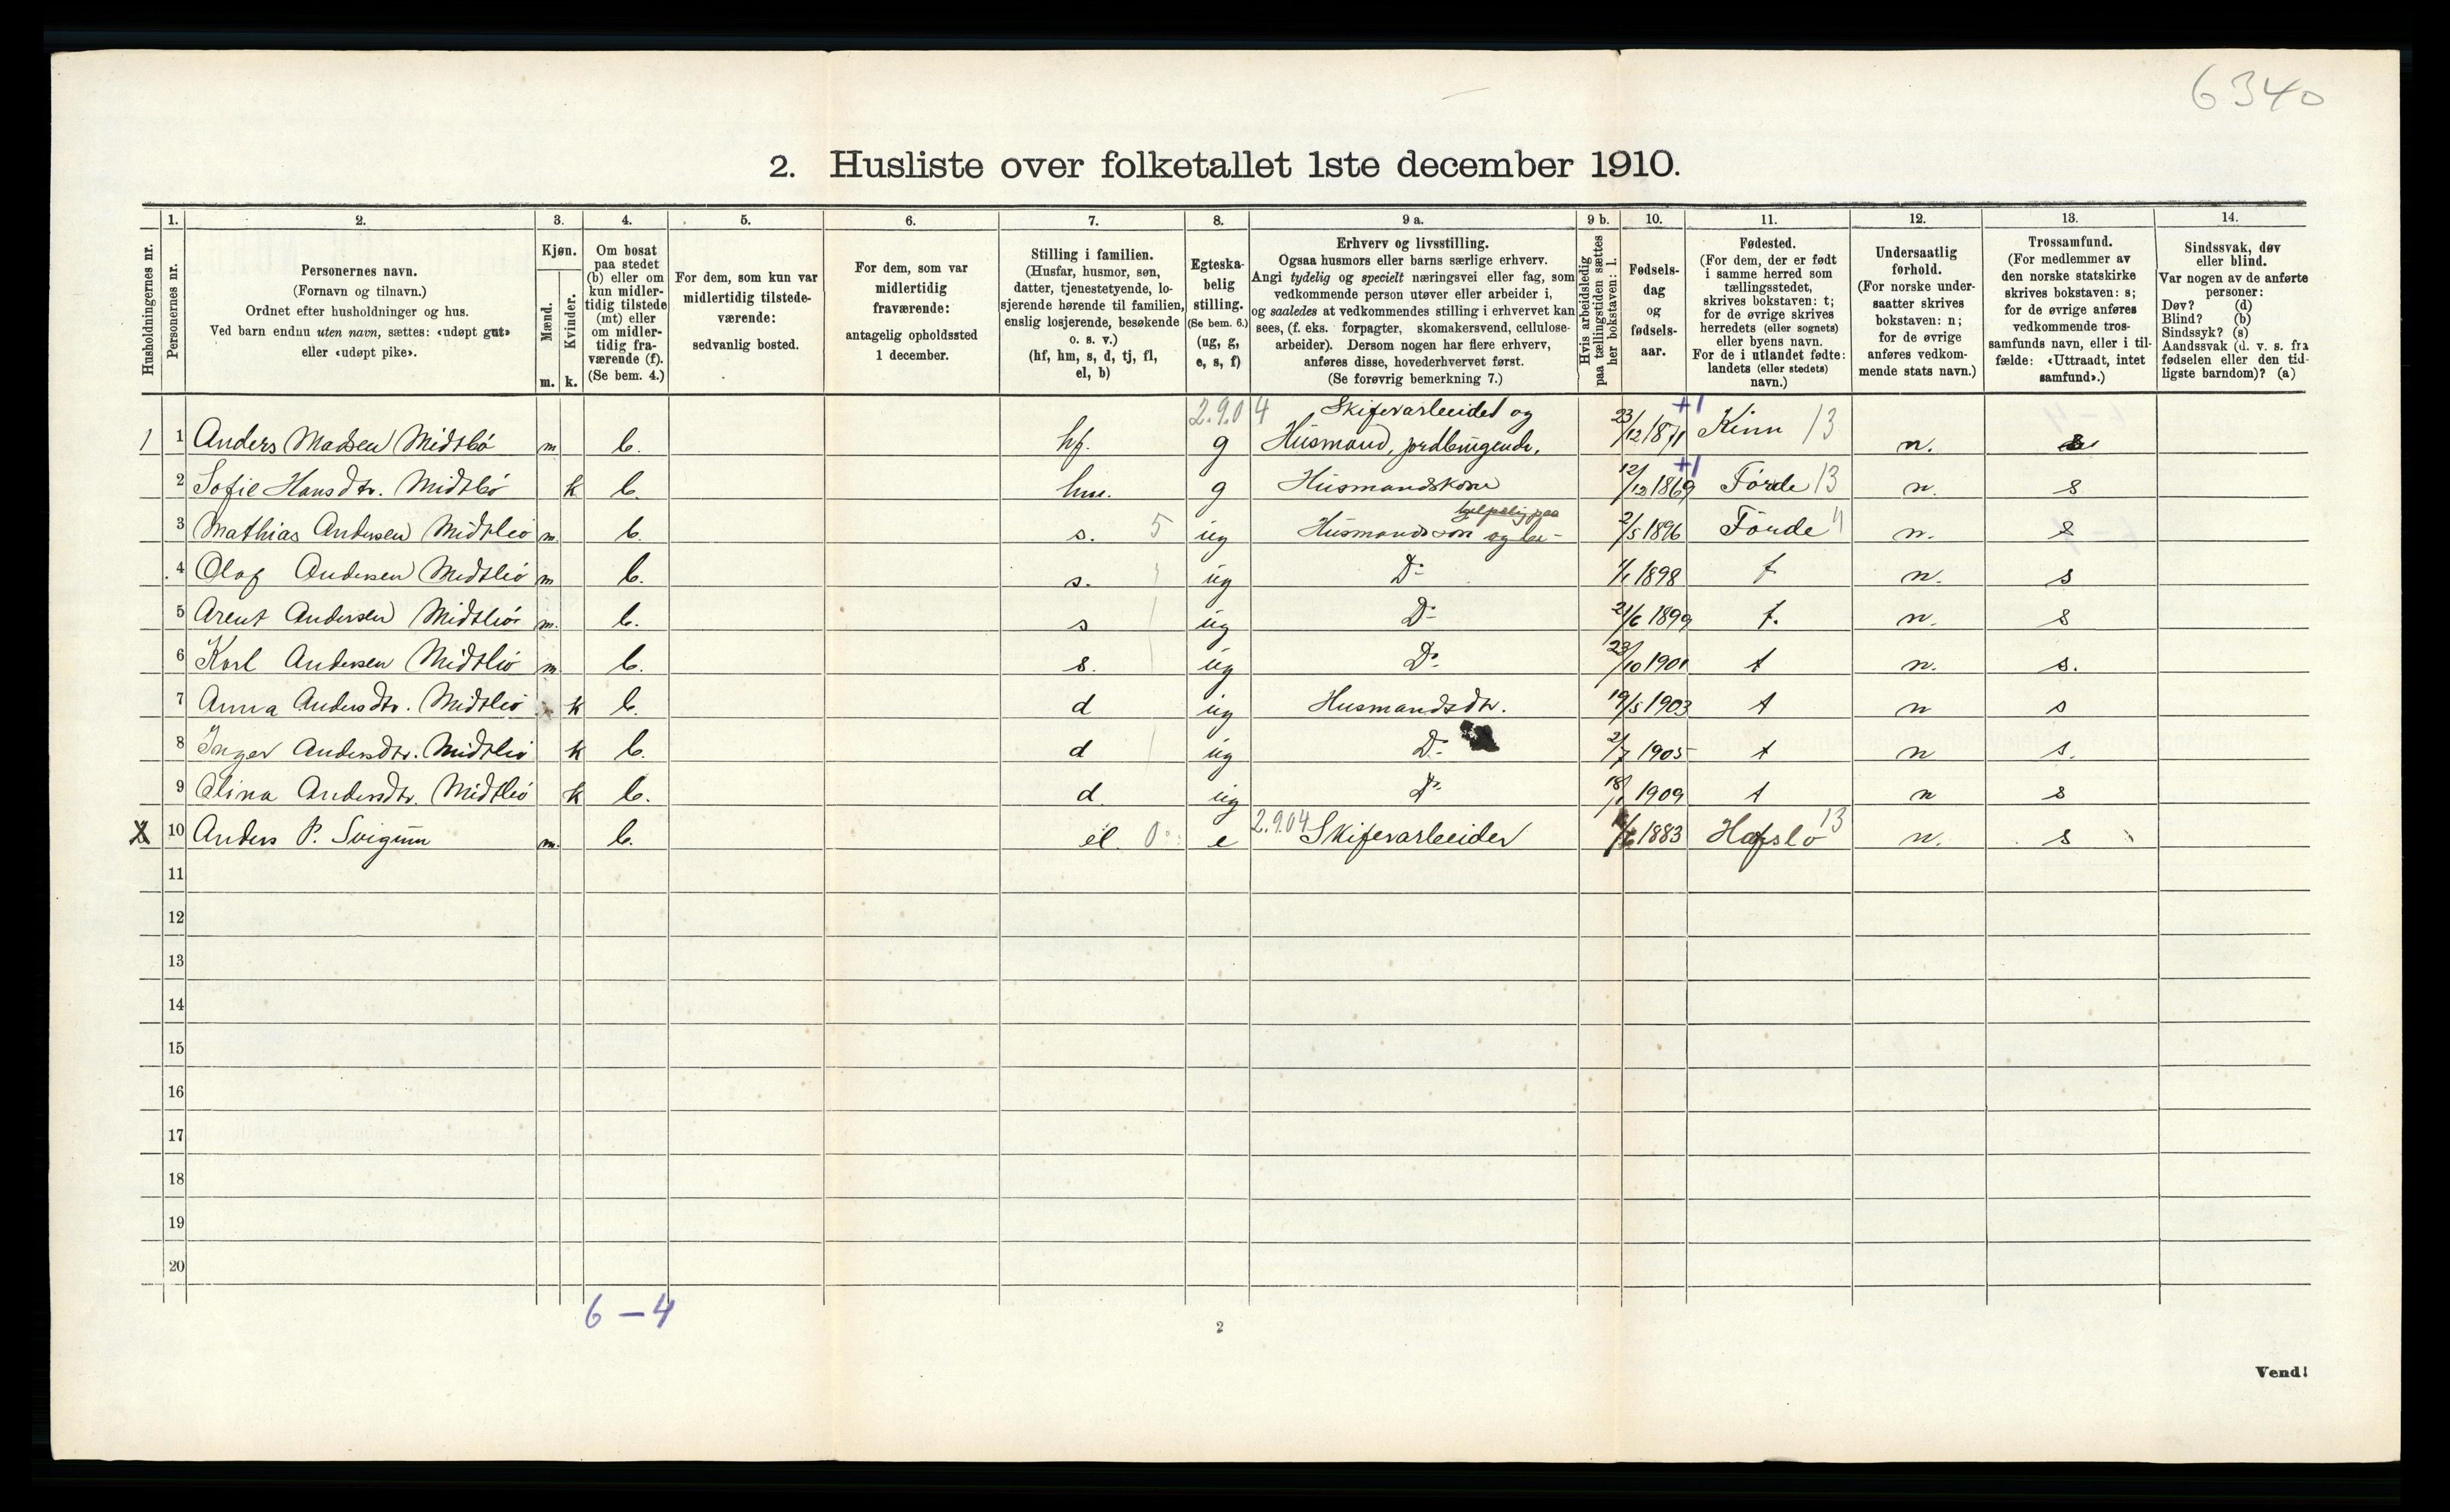 6340
2. Husliste over folketallet 1ste december 1910.
Husholdningernes nr.
1.
Personernes nr.
2.
Personernes navn.
(Fornavn og tilnavn.)
Ordnet efter husholdninger og hus.
Ved barn endnu uten navn, sættes: «udøpt gut»
eller «udøpt pike».
3.
Kjøn.
Mænd.
Kvinder.
m. k.
4.
Om bosat
paa stedet
(b) eller om
kun midler-
tidig tilstede
(mt) eller
om midler-
tidig fra-
værende (f).
(Se bem. 4.)
5.
For dem, som kun var
midlertidig tilstede-
værende:
sedvanlig bosted.
6.
For dem, som var
midlertidig
fraværende:
antagelig opholdssted
1 december.
7.
Stilling i familien.
(Husfar, husmor, søn,
datter, tjenestetyende, lo-
sjerende hørende til familien,
enslig losjerende, besøkende
o. s. v.)
(hf, hm, s, d, tj, fl,
el, b)
8.
Egteska-
belig
stilling.
(Se bem. 6.)
(ug, g,
e, s, f)
9 a.
Erhverv og livsstilling.
Ogsaa husmors eller barns særlige erhverv.
Angi tydelig og specielt næringsvei eller fag, som
vedkommende person utøver eller arbeider i,
og saaledes at vedkommendes stilling i erhvervet kan
sees, (f. eks. forpagter, skomakersvend, cellulose-
arbeider). Dersom nogen har flere erhverv,
anføres disse, hovederhvervet først.
(Se forøvrig bemerkning 7.)
9 b.
Hvis arbeidsledig
paa tællingstiden sættes
her bokstaven: l.
10.
Fødsels-
dag
og
fødsels-
aar.
11.
Fødested.
(For dem, der er født
i samme herred som
tællingsstedet,
skrives bokstaven: t;
for de øvrige skrives
herredets (eller sognets)
eller byens navn.
For de i utlandet fødte:
landets (eller stedets)
navn.)
12.
Undersaatlig
forhold.
(For norske under-
saatter skrives
bokstaven: n;
for de øvrige
anføres vedkom-
mende stats navn.)
13.
Trossamfund.
(For medlemmer av
den norske statskirke
skrives bokstaven: s;
for de øvrige anføres
vedkommende tros-
samfunds navn, eller i til-
fælde: «Uttraadt, intet
samfund».)
14.
Sindssvak, døv
eller blind.
Var nogen av de anførte
personer:
Døv? (d)
Blind? (b)
Sindssyk? (s)
Aandssvak (d. v. s. fra
fødselen eller den tid-
ligste barndom)? (a)
2.9.04 Skiferarbeider og +1
1 1 Anders Madsen Midtbø m b. hf. g Husmand, jordbrugende. 23/12 1871 Kinn 13 n. s
+1
2 Sofie Hansdtr. Midtbø k b. hm. g Husmandskone 12/12 1869 Førde 13 n. s
hjelpelig paa
3 Mathias Andersen Midtbø m. b. s. 5 ug Husmandssøn 2/5 1896 Førde n. s
4 Olaf Andersen Midtbø m b. s. ug Do 1/1 1898 t n. s
5 Arent Andersen Midtbø m. b. s ug Do 21/6 1899 t. n. s
6 Karl Andersen Midtbø m b. s. ug Do 23/10 1901 t n. s.
7 Anna Andersdtr. Midtbø k b. d ug Husmandsdtr. 19/5 1903 t n s
8 Inger Andersdtr. Midtbø k b. d ug Do 2/7 1905 t n s.
9 Olina Andersdtr. Midtbø k b. d. ug Do 18/1 1909 t n s
2 10 Anders P. Svigum m. b. el. 0 e 2.9.04 Skiferarbeider 1883 Hafslo 13 n. s
11
12
13
14
15
16
17
18
19
20
6 – 4
2
Vend!